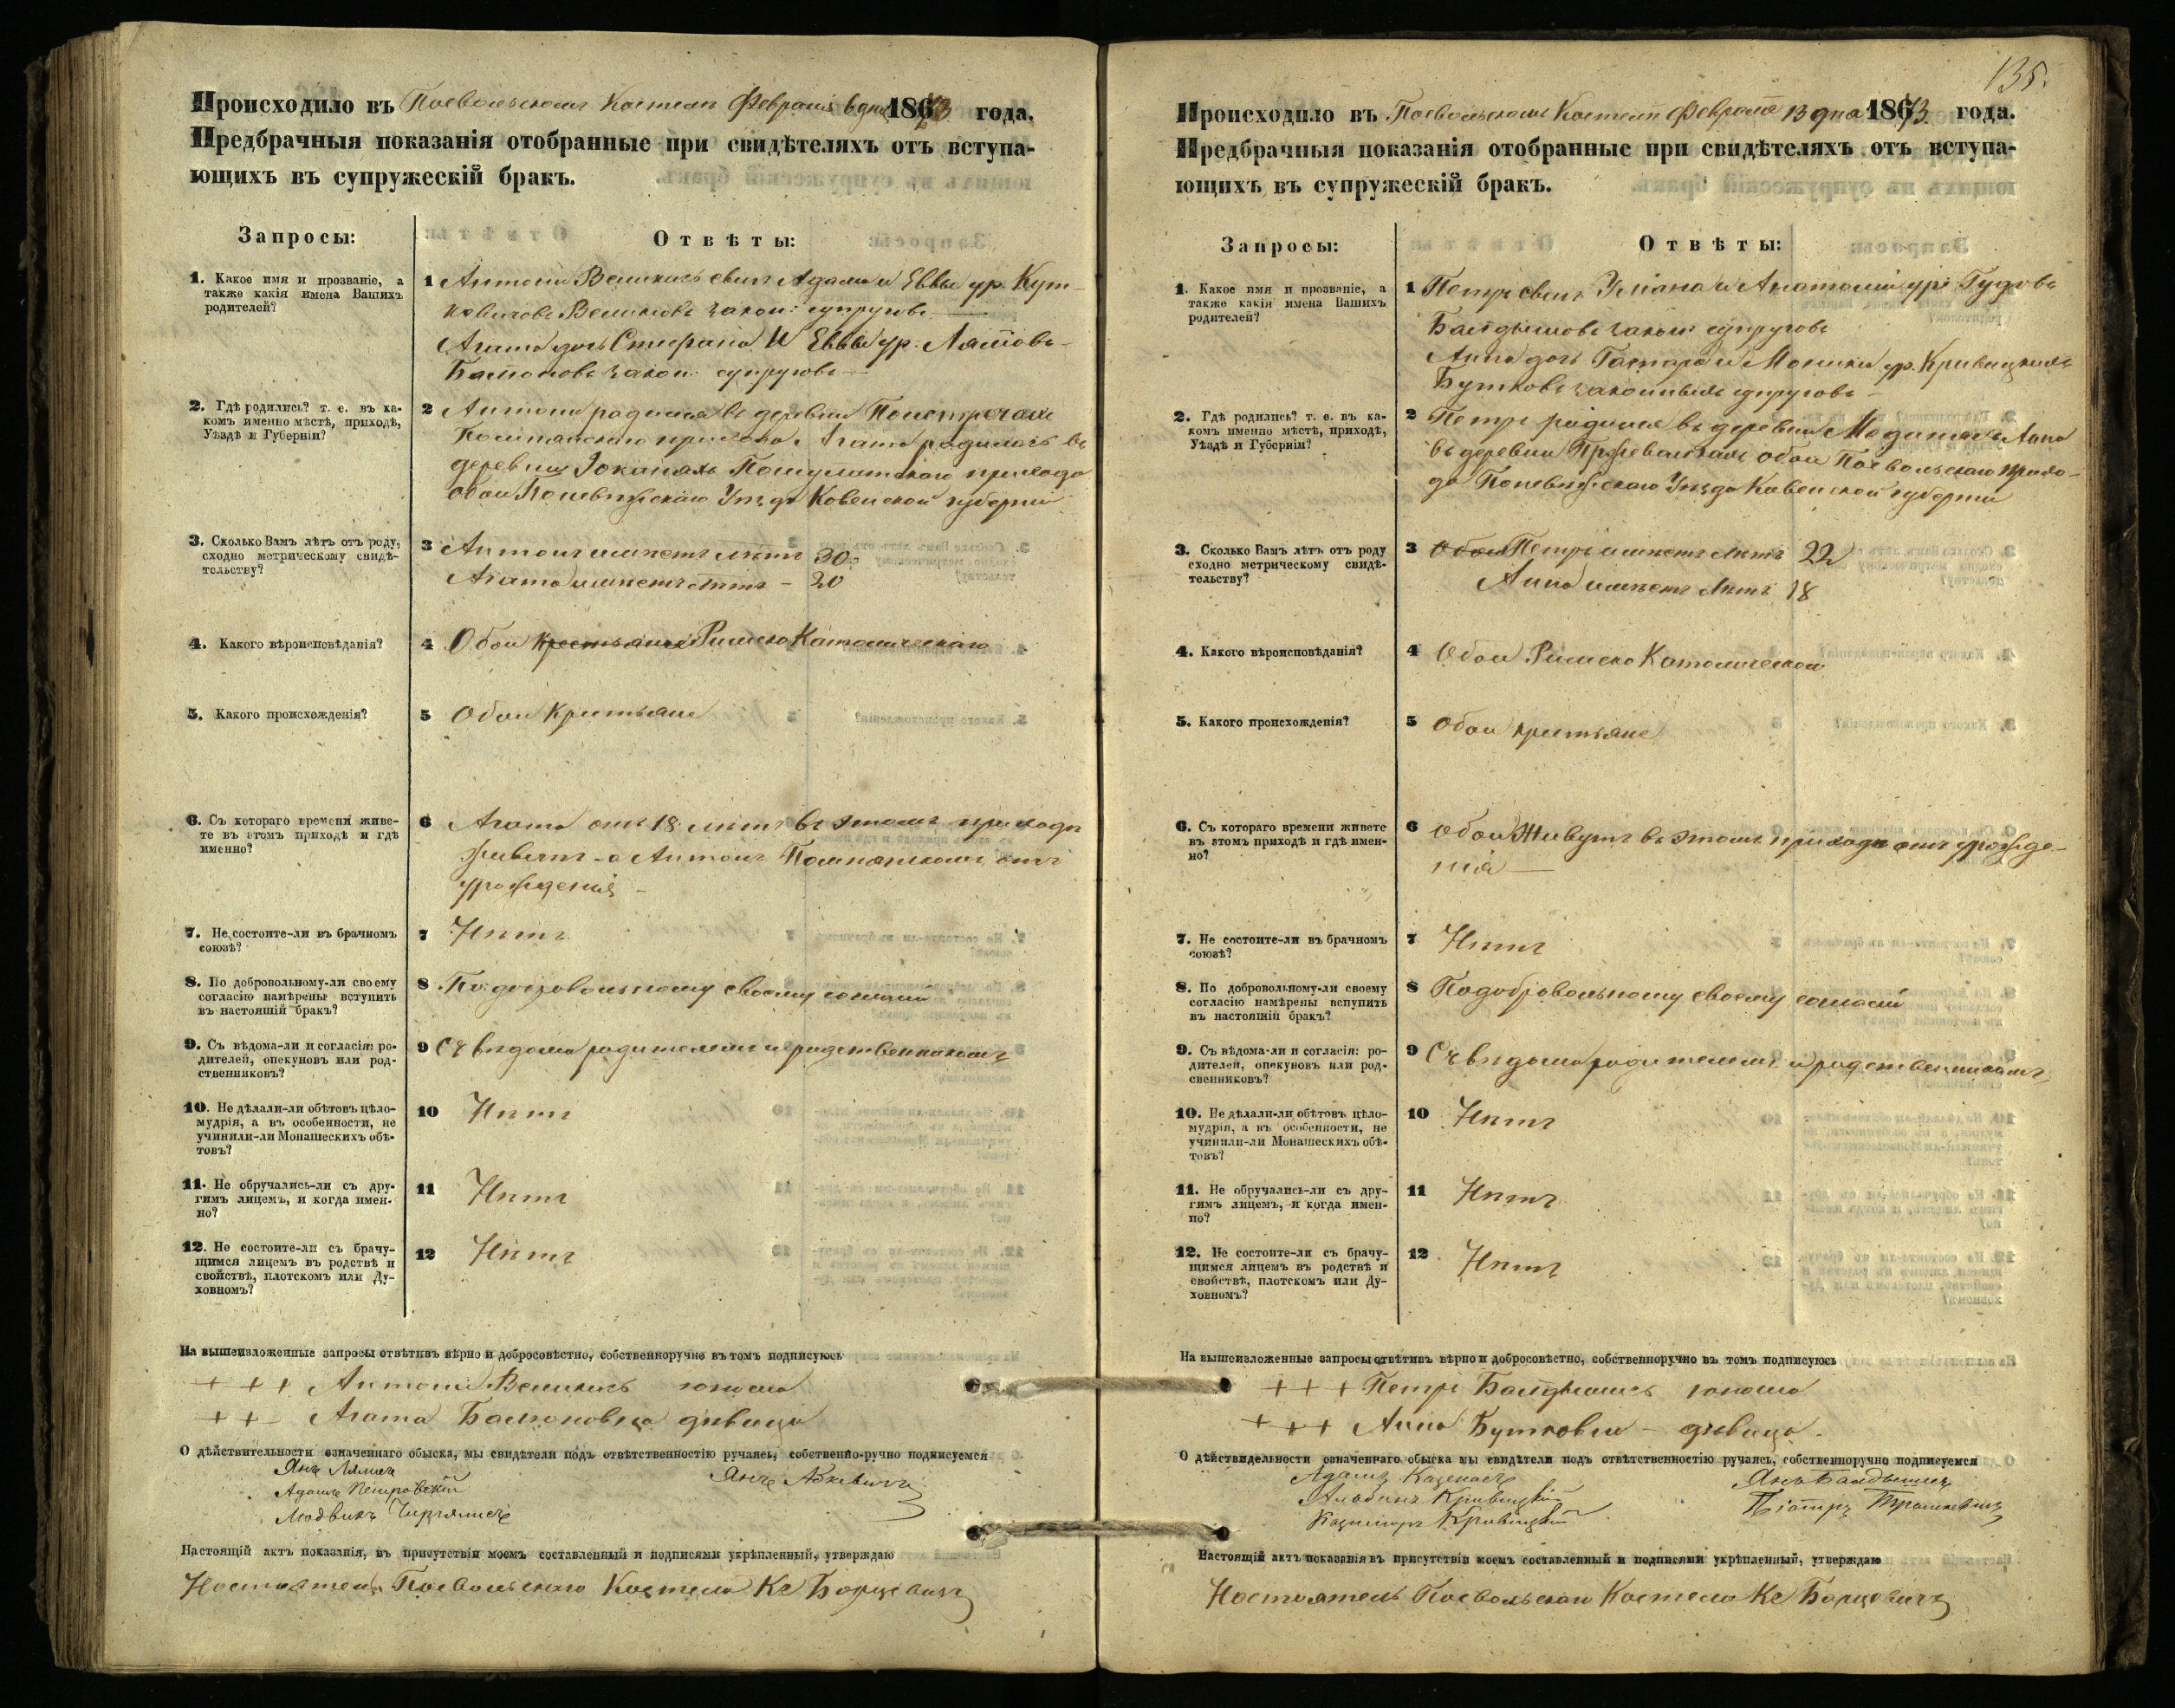 Происходило въ Поевольскомъ Костелѣ Февраля 6 дня 1873 года.
Предбрачныя показанія отобранные при свидѣтеляхъ отъ вступа-
ющихъ въ супружескій бракъ.
Запросы:
Отвѣты:
1. Какое имя и прозваніе, а
также какія имена Вашихъ
родителей?
1 Антони сынъ Адама и Еввы ур.
законъ: супруговъ
Агата дочь Стефана И Еввы ур.
закон: супруговъ
2. Гдѣ родились? т. е. въ ка-
комъ именно мѣстѣ, приходѣ,
Уѣздѣ и Губерніи?
2 Антони родился въ деревни
прихода Агата родилась въ
деревни прихода
обои Поневѣжскаго Уѣзда Ковенской губерніи
3. Сколько Вамъ лѣтъ отъ роду,
сходно метрическому свидѣ-
тельству?
3 Антонъ имѣетъ лѣтъ 30
Агата имѣетъ лѣтъ - 20
4. Какого вѣроисповѣданія?
4 Обои крестьяне Римско Католическаго
5. Какого происхожденія?
5 Обои Крестьяне
6. Съ котораго времени живе-
те въ этомъ приходѣ и гдѣ
именно?
6 Агата отъ 18 лѣтъ въ этомъ приходѣ
живетъ - а Антонъ отъ
урожденія -
7. Не состоите-ли въ брачномъ
союзѣ?
7 Нѣтъ
8. По добровольному-ли своему
согласію намѣрены вступить
въ настоящій бракъ?
8 По добровольному своему согласіи
9. Съ вѣдома-ли и согласія: ро-
дителей, опекуновъ или род-
ственниковъ?
9 Съ вѣдома родителемъ и родственникомъ
10. Не дѣлали-ли обѣтовъ цѣло-
мудрія, а въ особенности, не
учинили-ли Монашескихъ обѣ-
товъ?
10 Нѣтъ
11. Не обручались-ли съ дру-
гимъ лицемъ, и когда имен-
но?
11 Нѣтъ
12. Не состоите-ли съ брачу-
щимся лицемъ въ родствѣ и
свойствѣ, плотскомъ или Ду-
ховномъ?
12 Нѣтъ
На вышеизложенные запросы отвѣтивъ вѣрно и добросовѣстно, собственноручно въ томъ подписуюсь
+ + + Антони юноша
+ + - Агата дѣвица
О дѣйствительности означеннаго обыска, мы свидѣтели подъ отвѣтственностію ручаясь, собственно-ручно подписуемся
Янъ
Адамъ Петровскій
Людвикъ
Настоящій актъ показанія, въ присутствіи моемъ составленный и подписями укрѣпленный, утверждаю
Настоятель Поевольскаго Костела Кс Борцевичъ
135.
Происходило въ Поевольскомъ Костелѣ Февраля 13 дня 1873 года.
Предбрачныя показанія отобранные при свидѣтеляхъ отъ вступа-
ющихъ въ супружескій бракъ.
Запросы:
Отвѣты:
1. Какое имя и прозваніе, а
также какія имена Вашихъ
родителей?
1 Петръ сынъ Уліана и Анатоліи ур:
закон: супруговъ
Анна дочь и Моники ур. Кривицкихъ
Бутковъ законныхъ супруговъ
2. Гдѣ родились? т. е. въ ка-
комъ именно мѣстѣ, приходѣ,
Уѣздѣ и Губерніи?
2 Петръ родился въ деревни Анна
въ деревни обои Поевольскаго прихо-
да Поневѣжскаго Уѣзда Ковенской губерніи
3. Сколько Вамъ лѣтъ отъ роду
сходно метрическому свидѣ-
тельству?
3 Обои Петръ имѣетъ лѣтъ 22
Анна имѣетъ лѣтъ 18
4. Какого вѣроисповѣданія?
4 Обои Римско Католической
5. Какого происхожденія?
5 Обои крестьяне
6. Съ котораго времени живете
въ этомъ приходѣ и гдѣ имен-
но?
6 Обои Живутъ въ этомъ приходѣ отъ урожде-
нія
7. Не состоите-ли въ брачномъ
союзѣ?
7 Нѣтъ
8. По добровольному-ли своему
согласію намѣрены вступить
въ настоящій бракъ?
8 По добровольному своему согласіи
9. Съ вѣдома-ли и согласія: ро-
дителей, опекуновъ или род-
свенниковъ?
9 Съ вѣдома родителемъ и родственникомъ
10. Не дѣлали-ли обѣтовъ цѣло-
мудрія, а въ особенности, не
учинили-ли Монашескихъ обѣ-
товъ?
10 Нѣтъ
11. Не обручались-ли съ дру-
гимъ лицемъ, и когда имен-
но?
11 Нѣтъ
12. Не состоите-ли съ брачу-
щимся лицемъ въ родствѣ и
свойствѣ, плотскомъ или Ду-
ховномъ?
12 Нѣтъ
На вышеизложенные запросы отвѣтивъ вѣрно и добросовѣстно, собственноручно въ томъ подписуюсь
+ + + Петръ юноша
+ + + Анна дѣвица.
О дѣйствидельности означеннаго обыска мы свидѣтели подъ отвѣтственностію ручаясь, собственноручно подписуемся
Адамъ
Альбинъ Кривицкій
Казимиръ Кривицкій
Настоящій актъ показанія въ присутствіи моемъ составленный и подписями укрѣпленный, утверждаю
Настоятель Поевольскаго Костела Кс Борцевичъ